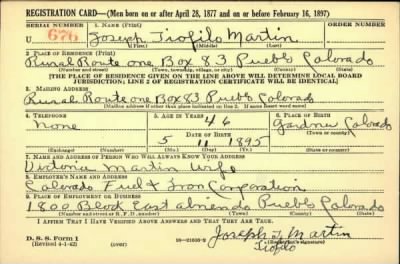 REGISTRATION CARD—(Men born on or after April 28, 1877 and on or before February 16, 1897)
SERIAL NUMBER 1. NAME (Print) ORDER NUMBER
U 676 Joseph Tiofilo Martin
(First) (Middle) (Last)
2. PLACE OF RESIDENCE (Print)
Rural Route one Box 83 Pueblo Colorado
(Number and street) (Town, township, village, or city) (County) (State)
[THE PLACE OF RESIDENCE GIVEN ON THE LINE ABOVE WILL DETERMINE LOCAL BOARD
JURISDICTION; LINE 2 OF REGISTRATION CERTIFICATE WILL BE IDENTICAL]
3. MAILING ADDRESS
Rural Route one Box 83 Pueblo Colorado
[Mailing address if other than place indicated on line 2. If same insert word same]
4. TELEPHONE 5. AGE IN YEARS 6. PLACE OF BIRTH
None 46 Gardner
DATE OF BIRTH (Town or county)
5 11 1895 Colorado
(Exchange) (Number) (Mo.) (Day) (Yr.) (State or country)
7. NAME AND ADDRESS OF PERSON WHO WILL ALWAYS KNOW YOUR ADDRESS
Victoria Martin Wife
8. EMPLOYER'S NAME AND ADDRESS
Colorado Fuel & Iron Corporation
9. PLACE OF EMPLOYMENT OR BUSINESS
1800 Block East abriendo Pueblo Colorado
(Number and street or R. F. D. number) (Town) (County) (State)
I AFFIRM THAT I HAVE VERIFIED ABOVE ANSWERS AND THAT THEY ARE TRUE.
D. S. S. Form 1
(Revised 4-1-42) (over) Joseph T. Martin
Tiofilo (Registrant's signature)